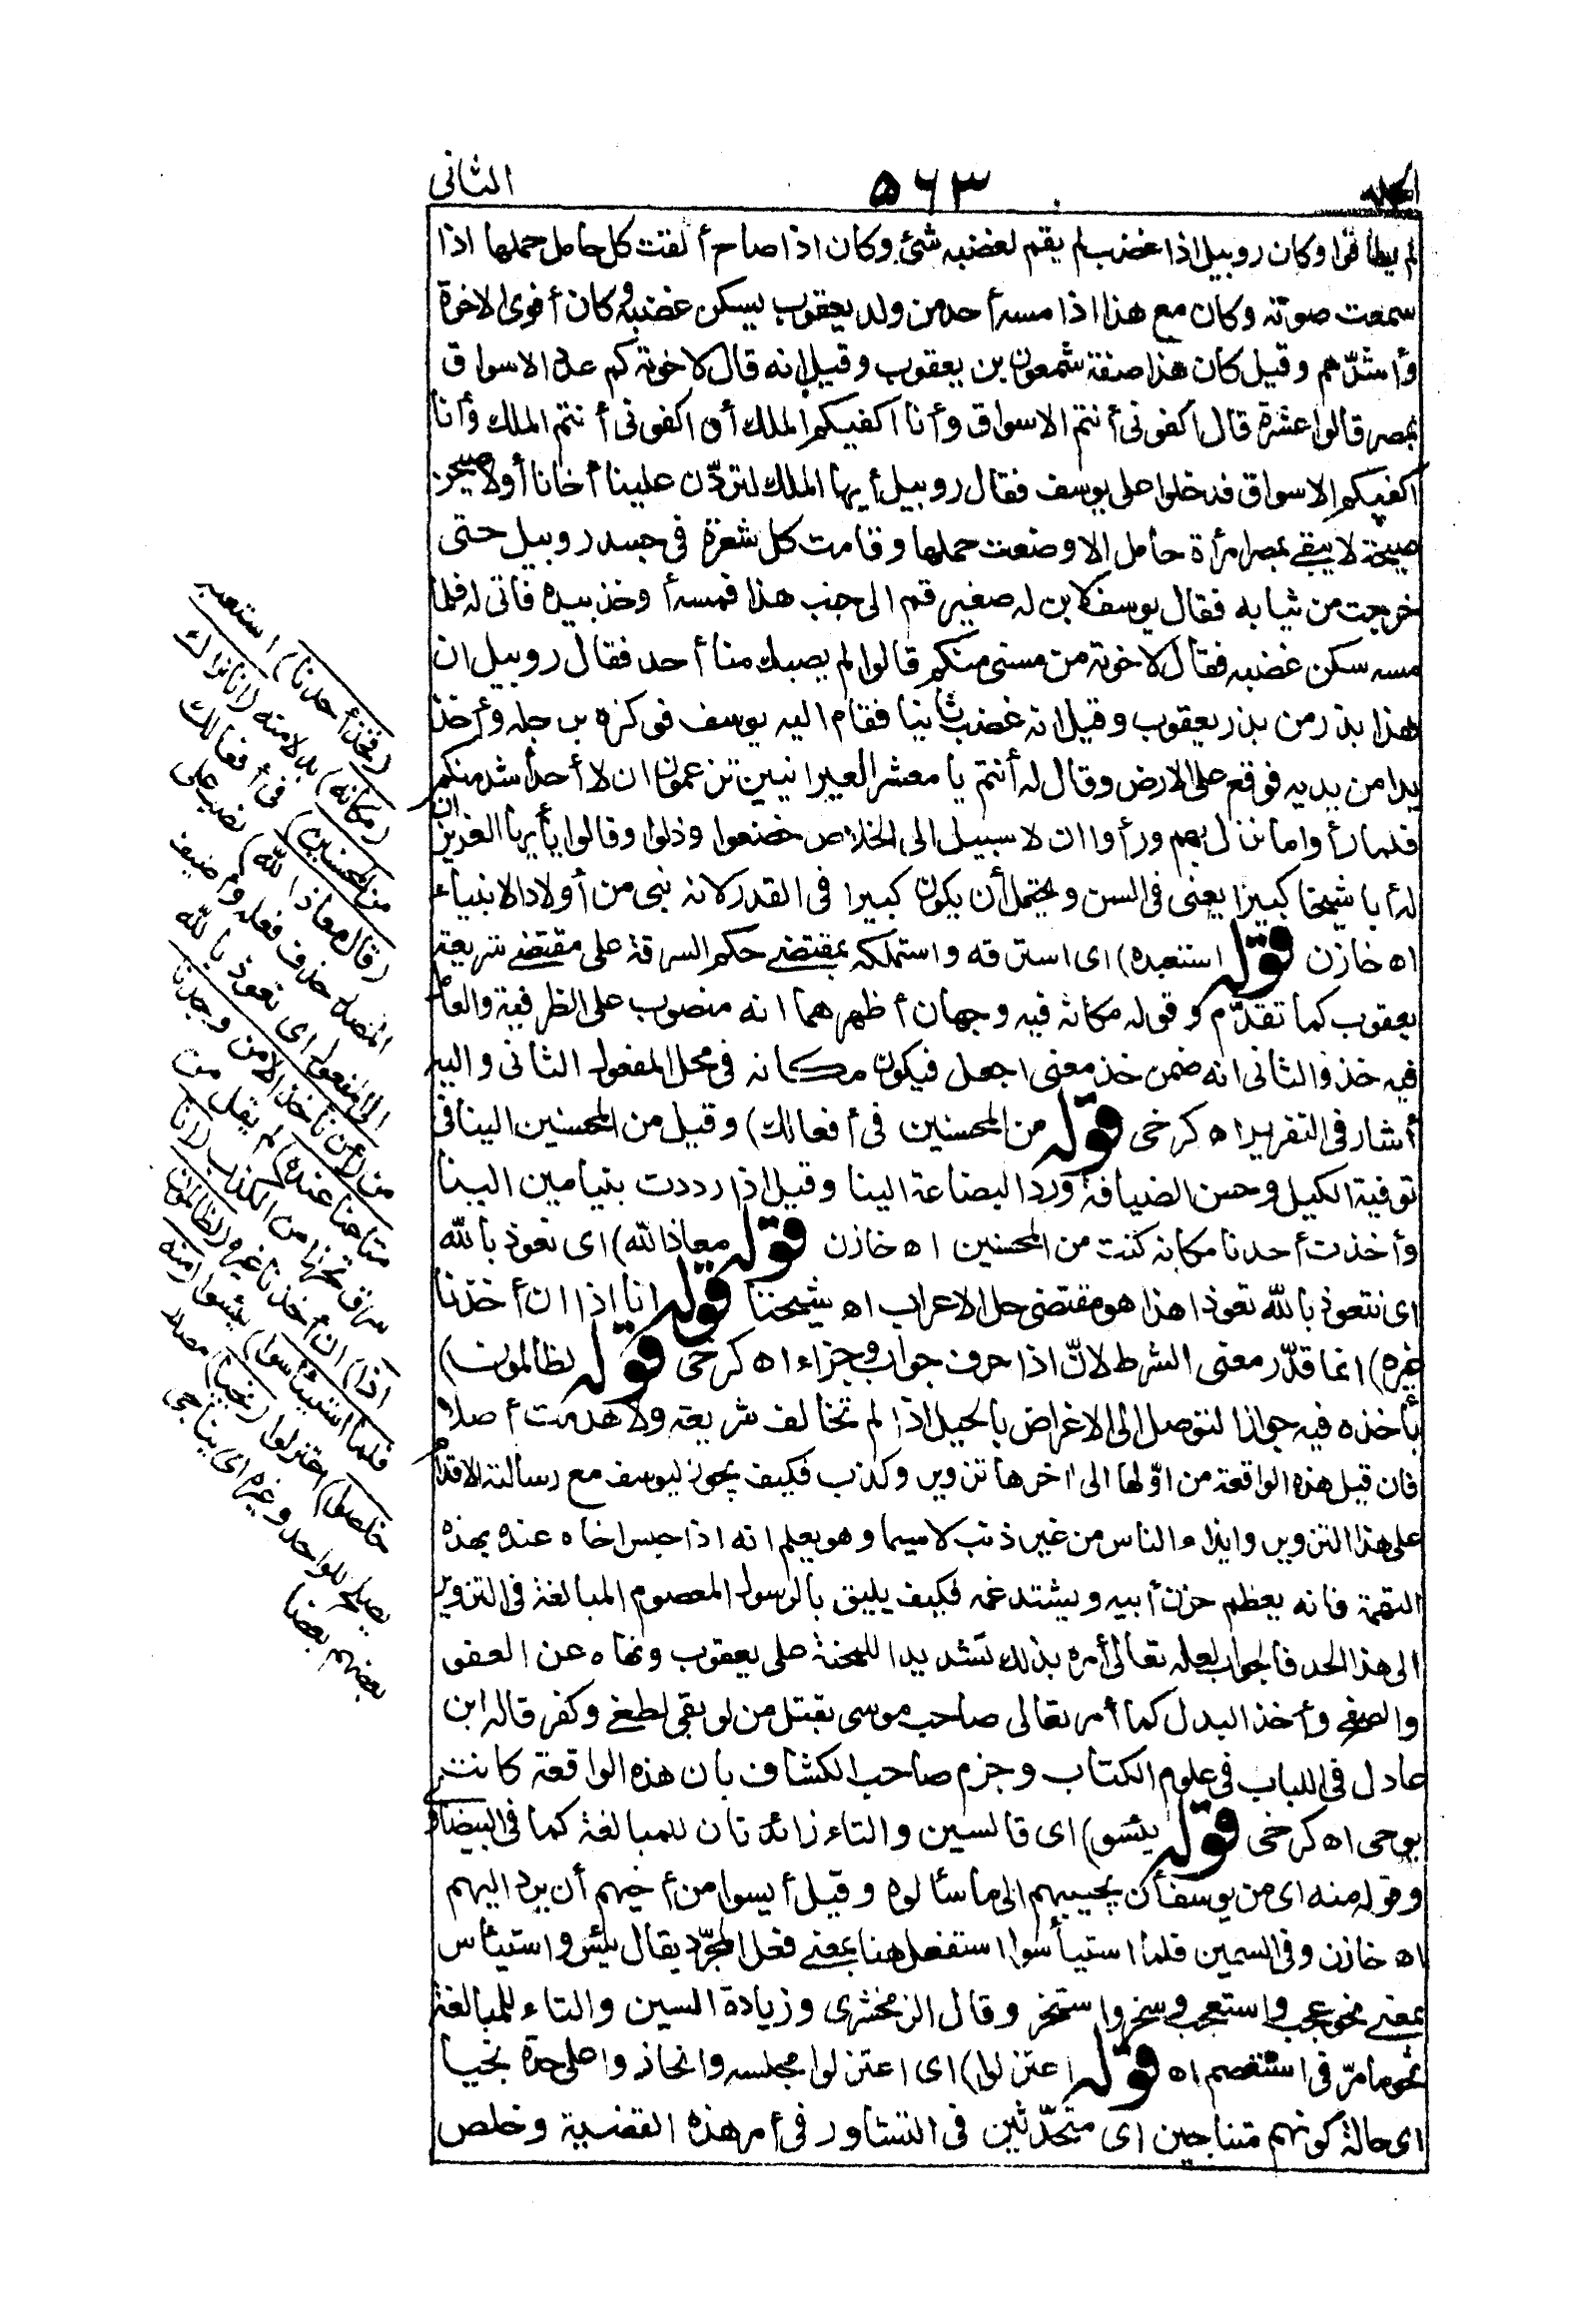 الجلد ٥٦٣ الثانى
لم يطاقوا وكان روبيل اذا غضب لم يقم لغضبه شئ وكان اذا صاح ألقت كل حامل حملها اذا
سمعت صوته وكان مع هذا اذا مسه أحد من ولد يعقوب يسكن غضبه وكان أقوى الاخوة
وأشدّهم وقيل كان هذا صفة شمعون بن يعقوب وقيل انه قال لاخوته كم عدد الاسواق
بمصر قالوا عشرة قال اكفونى أنتم الاسواق وأنا اكفيكم الملك أو اكفونى أنتم الملك وأنا
اكفيكم الاسواق فدخلوا على يوسف فقال روبيل أيها الملك لتردّن علينا أخانا أو لاصيحن
صيحة لا يبقى بمصر امرأة حامل الا وضعت حملها وقامت كل شعرة فى جسد روبيل حتى
خرجت من ثيابه فقال يوسف لابن له صغير قم الى جنب هذا فمسه أو خذ بيده فأتى له فلما
مسه سكن غضبه فقال لاخوته من مسنى منكم قالوا لم يصبك منا أحد فقال روبيل ان
هذا بذر من بذر يعقوب وقيل انه غضب ثانيا فقام اليه يوسف فوكزه برجله وأخذ
يدا من يديه فوقع على الارض وقال له أنتم يا معشر العبرانيين تزعمون ان لا أحد أشد منكم
فلما رأوا ما نزل بهم ورأوا ان لا سبيل الى الخلاص خضعوا وذلوا وقالوا يأيها العزيز ان
له أبا شيخا كبيرا يعنى فى السن ويحتمل أن يكون كبيرا فى القدر لانه نبى من أولاد الانبياء
اه خازن قوله استعبده) اى استرقه واستملكه بمقتضى حكم السرقة على مقتضى شريعة
يعقوب كما تقدّم وقوله مكانه فيه وجهان أظهرهما انه منصوب على الظرفية والعامل
فيه خذ والثانى انه ضمن خذ معنى اجعل فيكون مكانه فى محل المفعول الثانى واليه
أشار فى التقرير اه كرخى قوله من المحسنين فى أفعالك) وقيل من المحسنين الينا فى
توفية الكيل وحسن الضيافة ورد البضاعة الينا وقيل اذا رددت بنيامين الينا
وأخذت أحدنا مكانه كنت من المحسنين اه خازن قوله معاذ الله) اى نعوذ بالله
اى نتعوذ بالله تعوذا هذا هو مقتضى حل الاعراب اه شيخنا قوله انا اذا ان أخذنا
غيره) انما قدّر معنى الشرط لانّ اذا حرف جواب وجزاء اه كرخى قوله لظالمون)
بأخذه فيه جواز التوصل الى الاغراض بالحيل اذا لم تخالف شريعة ولا هدمت أصلا
فان قيل هذه الواقعة من اوّلها الى اخرها تزوير وكذب فكيف يجوز ليوسف مع رسالته الاقدام
على هذا التزوير وايذاء الناس من غير ذنب لاسيما وهو يعلم انه اذا حبس اخاه عنده بهذه
التهمة فانه يعظم حزن أبيه ويشتد غمه فكيف يليق بالرسول المعصوم المبالغة فى التزوير
الى هذا الحد فالجواب لعله تعالى أمره بذلك تشديدا للمحنة على يعقوب ونهاه عن العفو
والصفح وأخذ البدل كما أمر تعالى صاحب موسى بقتل من لو بقى لطغى وكفر قاله ابن
عادل فى اللباب فى علوم الكتاب وجزم صاحب الكشاف بان هذه الواقعة كانت
بوحى اه كرخى قوله يئسوا) اى فالسين والتاء زائدتان للمبالغة كما فى البيضاوى
وقوله منه اى من يوسف أن يجيبهم الى ما سألوه وقيل أيسوا من أخيهم أن يرد اليهم
اه خازن وفى السمين فلما استيأسوا استفعل هنا بمعنى فعل المجرّد يقال يئس واستيأس
بمعنى نحو عجب واستعجب وسخر واستسخر وقال الزمخشرى وزيادة السين والتاء للمبالغة
نحو ما مرّ فى استعصم اه قوله اعتزلوا) اى اعتزلوا مجلسه وانحازوا على حدة نجيا
اى حالة كونهم متناجين اى متحدّثين فى التشاور فى أمر هذه القضية وخلص
(فخذ أحدنا) استعبده
(مكانه) بدلا منه (انا نراك
من المحسنين) فى أفعالك
(قال معاذ الله) نصب على
المصدر حذف فعله وأضيف
الى المفعول اى نعوذ بالله
من (أن نأخذ الا من وجدنا
متاعنا عنده) لم يقل من
سرق تحرزا من الكذب (انا
اذا) ان أخذنا غيره (لظالمون
فلما استيئسوا) يئسوا (منه
خلصوا) اعتزلوا (نجيا) مصدر
يصلح للواحد وغيره اى يناجى
بعضهم بعضا